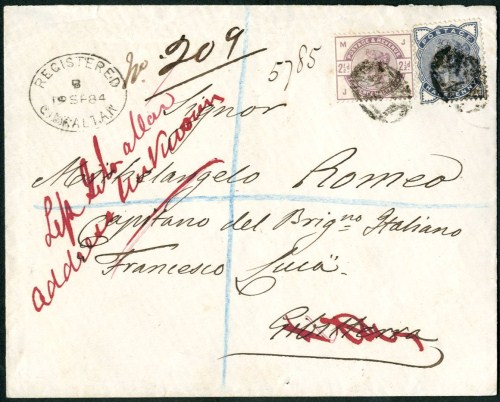 REGISTERED
8
SP 84
GIBRALTAR
No. 209
5785
POSTAGE & REVENUE
M J
2½d 2½d
J M
POSTAGE
Signor
Michelangelo Romeo
Capitano del Brigno Italiano
Francesco Lucà
Gibilterra
Left Gibraltar
address unknown